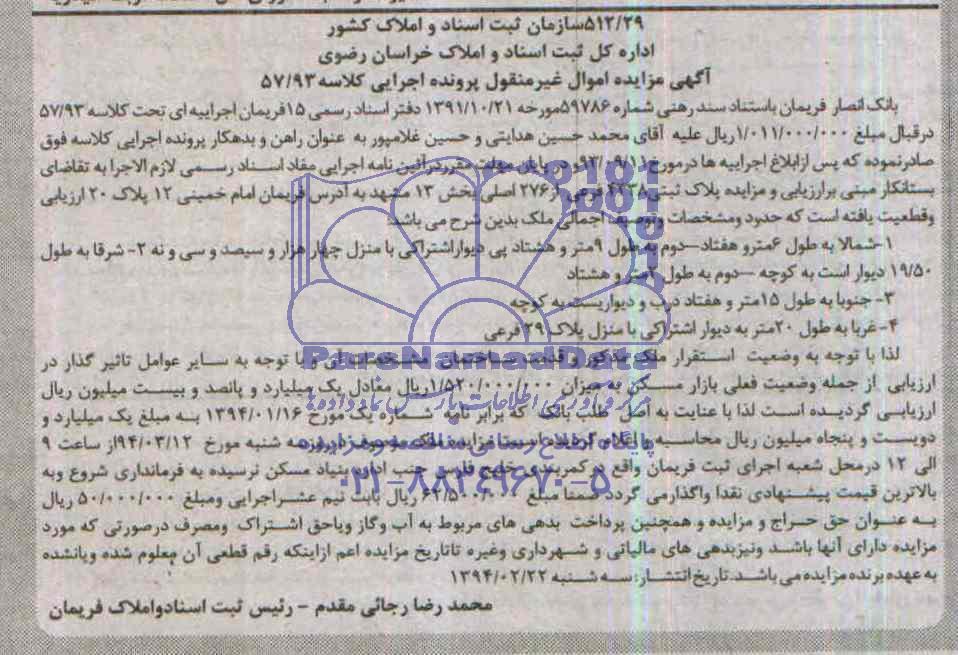 ۵۱۲/۲۹سازمان ثبت اسناد و املاک کشور
اداره کل ثبت اسناد و املاک خراسان رضوی
آگهی مزایده اموال غیرمنقول پرونده اجرایی کلاسه ۵۷/۹۳
بانک انصار فریمان باستناد سند رهنی شماره ۵۹۷۸۶مورخه ۱۳۹۱/۱۰/۲۱ دفتر اسناد رسمی ۱۵فریمان اجراییه ای تحت کلاسه ۵۷/۹۳
درقبال مبلغ ۱/۰۱۱/۰۰۰/۰۰۰ریال علیه آقای محمد حسین هدایتی و حسین غلامپور به عنوان راهن و بدهکار پرونده اجرایی کلاسه فوق
صادرنموده که پس ازابلاغ اجراییه ها درمورخ ۹۳/۰۹/۱۱و در پایان مهلت مقرردرآئین نامه اجرایی مفاد اسناد رسمی لازم الاجرا به تقاضای
بستانکار مبنی برارزیابی و مزایده پلاک ثبتی ۴۳۳۸ فرعی از ۲۷۶ اصلی بخش ۱۳ مشهد به آدرس فریمان امام خمینی ۱۲ پلاک ۲۰ ارزیابی
وقطعیت یافته است که حدود ومشخصات وتوصیف اجمالی ملک بدین شرح می باشد:
۱-شمالا به طول ۶مترو هفتاد-دوم به طول ۹متر و هشتاد پی دیواراشتراکی با منزل چهار هزار و سیصد و سی و نه ۲- شرقا به طول
۱۹/۵۰ دیوار است به کوچه –دوم به طول ۲متر و هشتاد
۳- جنوبا به طول ۱۵متر و هفتاد درب و دیواریست به کوچه
۴- غربا به طول ۲۰متر به دیوار اشتراکی با منزل پلاک ۳۹ فرعی
لذا با توجه به وضعیت استقرار ملک مذکور و قدمت ساختمان مشخصات آن و با توجه به سایر عوامل تاثیر گذار در
ارزیابی از جمله وضعیت فعلی بازار مسکن به میزان ۱/۵۲۰/۰۰۰/۰۰۰ریال معادل یک میلیارد و پانصد و بیست میلیون ریال
ارزیابی گردیده است لذا با عنایت به اصل طلب بانک که برابر نامه شماره یک مورخ ۱۳۹۴/۰۱/۱۶ به مبلغ یک میلیارد و
دویست و پنجاه میلیون ریال محاسبه و اعلام گردیده است مزایده ملک موصوف در روز سه شنبه مورخ ۹۴/۰۳/۱۲از ساعت ۹
الی ۱۲ درمحل شعبه اجرای ثبت فریمان واقع در کمربندی خلیج فارس جنب اداره بنیاد مسکن نرسیده به فرمانداری شروع وبه
بالاترین قیمت پیشنهادی نقدا واگذارمی گردد ضمنا مبلغ ۶۲/۵۰۰/۰۰۰ ریال بابت نیم عشراجرایی ومبلغ ۵۰/۰۰۰/۰۰۰ ریال
به عنوان حق حراج و مزایده و همچنین پرداخت بدهی های مربوط به آب وگاز ویاحق اشتراک ومصرف درصورتی که مورد
مزایده دارای آنها باشد ونیزبدهی های مالیاتی و شهرداری وغیره تاتاریخ مزایده اعم ازاینکه رقم قطعی آن معلوم شده ویانشده
به عهده برنده مزایده می باشد.تاریخ انتشار: سه شنبه ۱۳۹۴/۰۲/۲۲
محمد رضا رجائی مقدم - رئیس ثبت اسنادواملاک فریمان
ParsNamadData
پایگاه اطلاع رسانی مناقصه و مزایده
۰۲۱-۸۸۳۴۹۶۷۰-۵